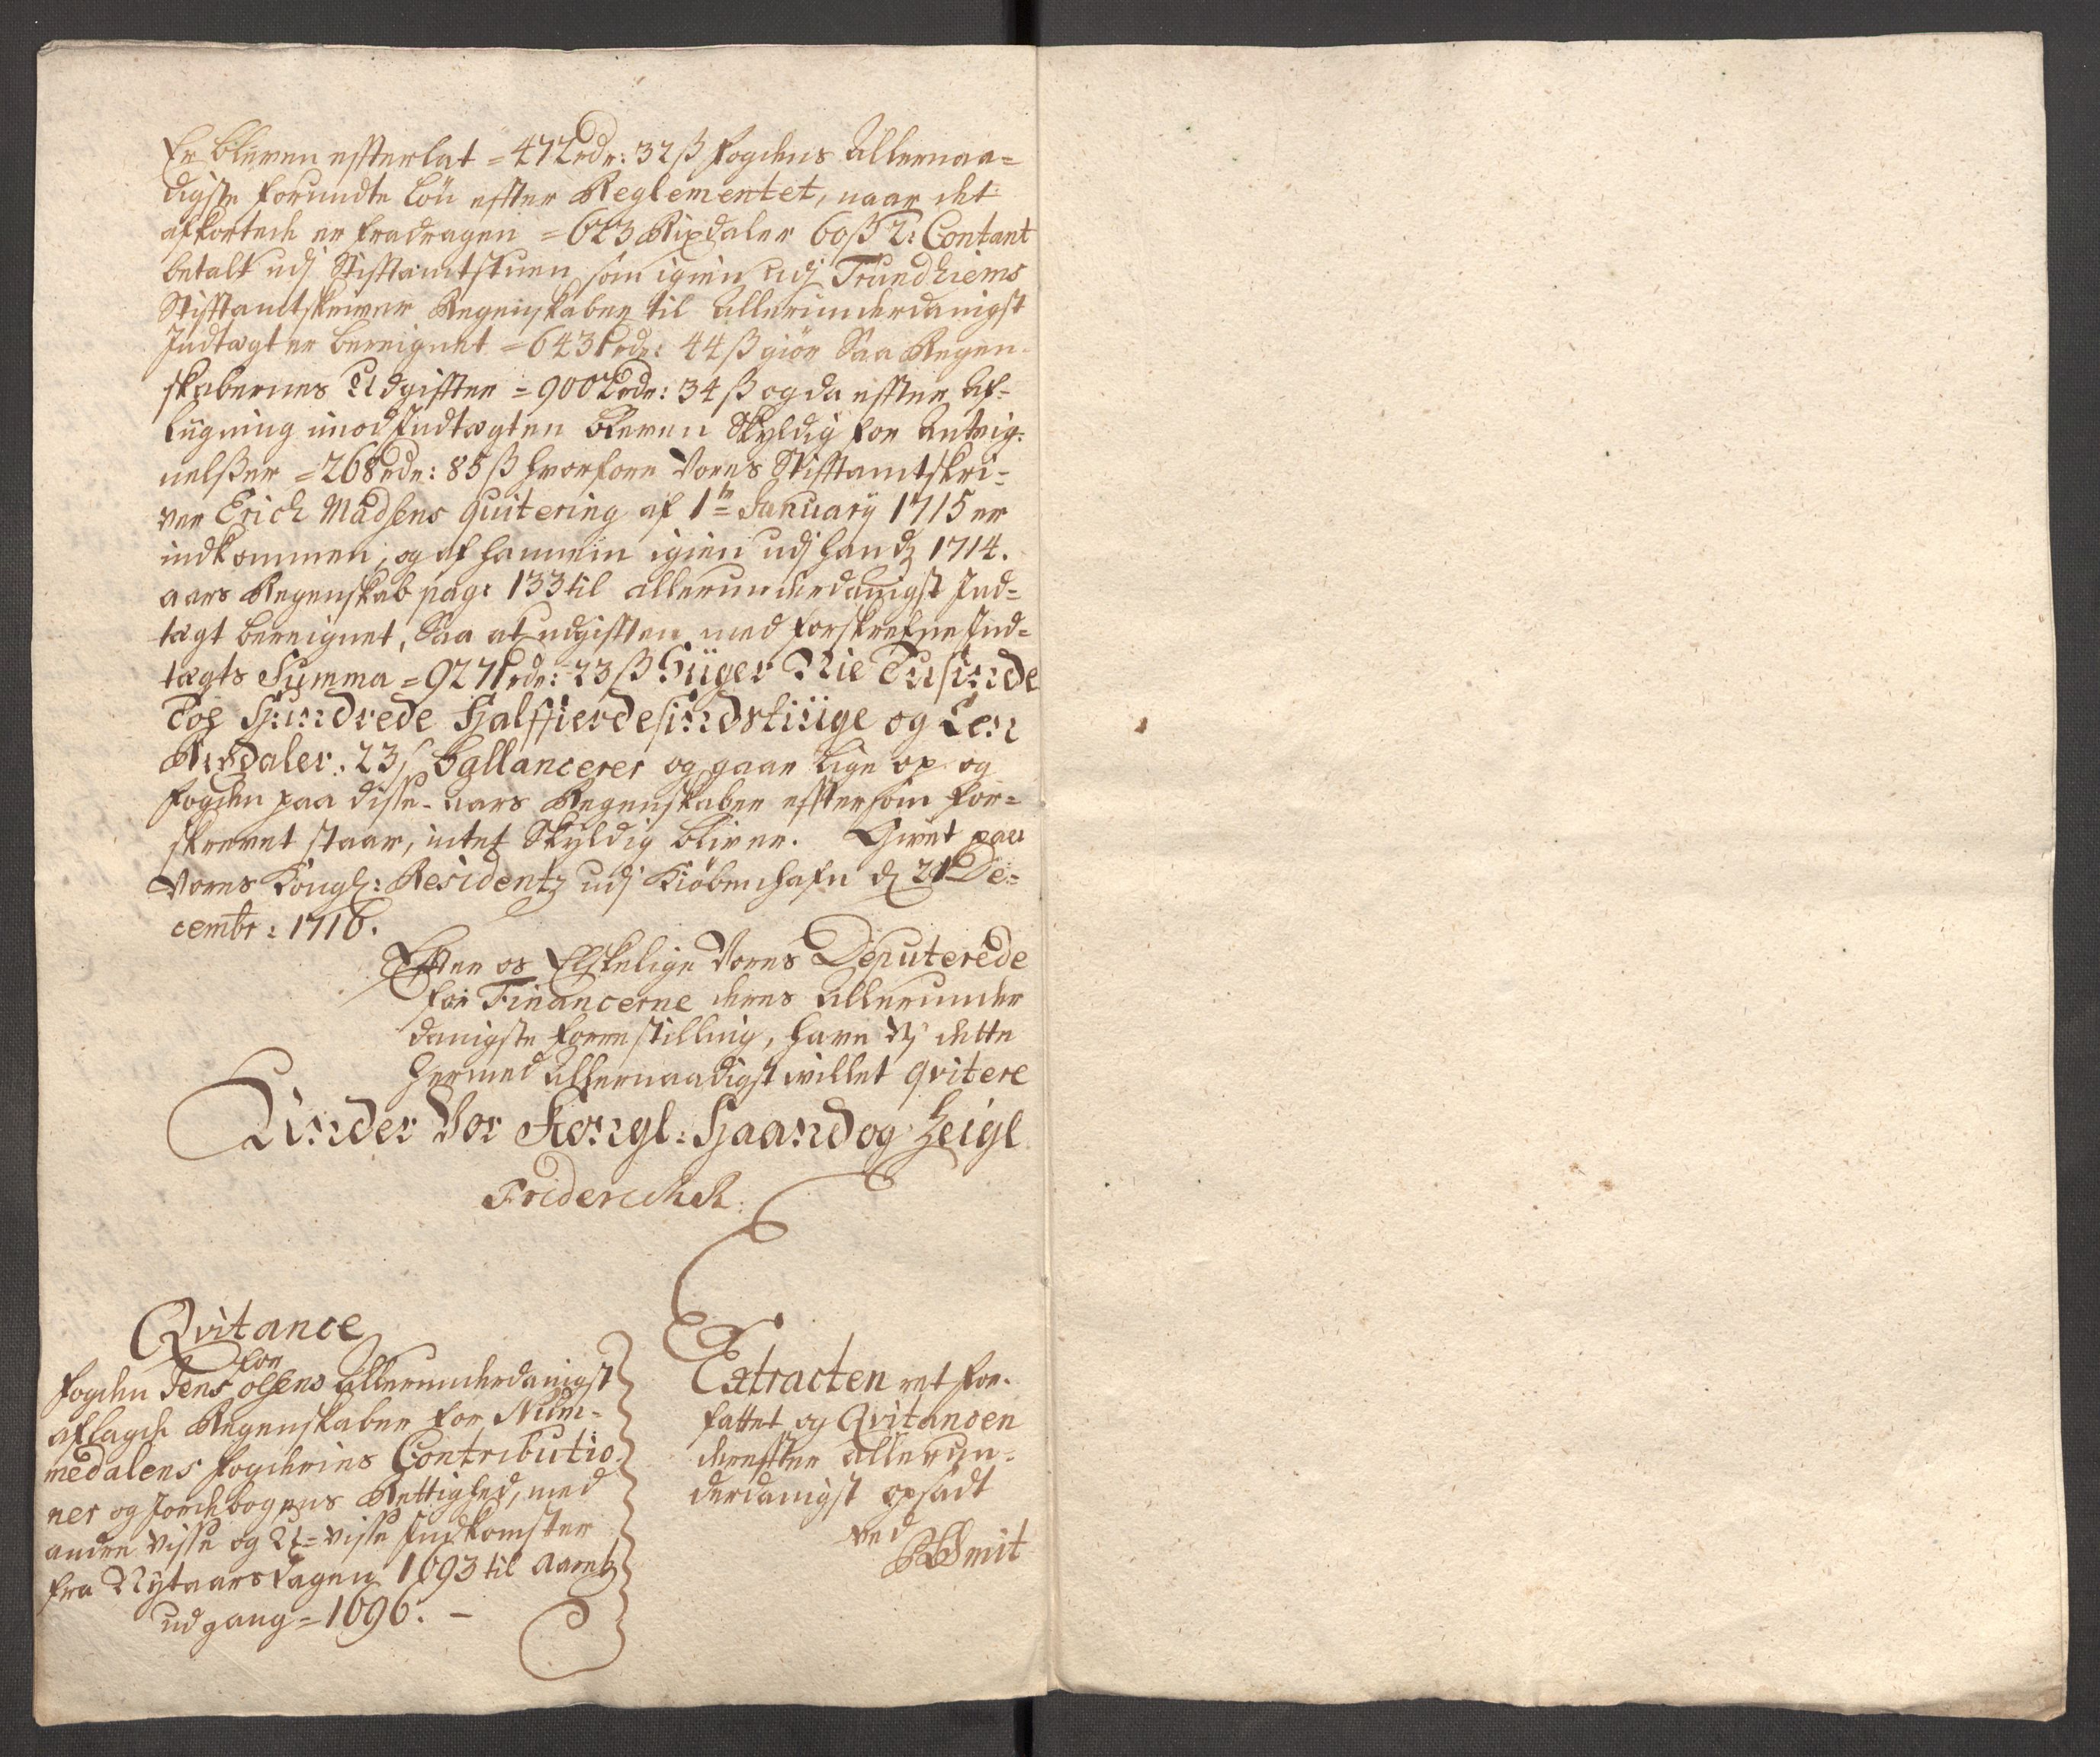 Er bleven effterlat = 472 rdr: 32 ß fogdens Allernaa=
digste forundte Løn effter Reglementet, naar det
afkortede er fradragen = 623 Rixdaler 60 ß 2: Contant
betalt udj Stifftamtstuen, som igien udj Trundhiems
Stifftamtskriver Regenskaber til Allerunderdanigst
Indtægt er bereignet = 6431 rdr: 44 ß giør Saa Regen-
skabernes Udgiffter = 9002 rdr: 34 ß og da effter Af=
lugning imod Indtægten bleven Skyldig for Antvig:
nelßer = 268 rdr: 85 ß hvorfore Vores Stifftamtskri=
ver Erich Madsens Quitering af 1te January 1715 er
indkommen, og af hannem igien udj hands 1714.
aars Regenskab pag: 133 til allerunderdanigst Ind=
tægt bereignet, Saa at udgifften med forskrefne Ind=
tægts Summa = 9271 rdr: 23 ß Siiger Nie Tusinde
Toe Hundrede Halffierdesindstiuge og Een
Rixdaler. 23 ß Ballancerer og gaar lige op og
fogden paa disse aars Regenskaber effter som for=
skrevet staar, intet Skyldig bliver. Givet paa
Vores Kongl: Residentz udj Kiøbenhafn d 21 De=
cembr: 1716.
Effter os Elskelige Vores Deputerede
for Financerne deres allerunder
danigste forrestilling, have Vj dette
hermed allernaadigst villet qvitere
Under Vor Kongl: Haand og Zeigl
Friderich R.
Qvitance
for
fogden Jens Olsens allerunderdanigst
aflagde Regenskaber for Num=
medalens fogderies Contributio=
ner og Jordebogens Rettighed, med
andre visse og U=visse Indkomster
fra Nytaarsdagen 1693 til Aarets
udgang = 1696. -
Extracten ret for=
fattet og Qvitancen
dereffter allerun=
derdanigst opsadt
ved
Smit